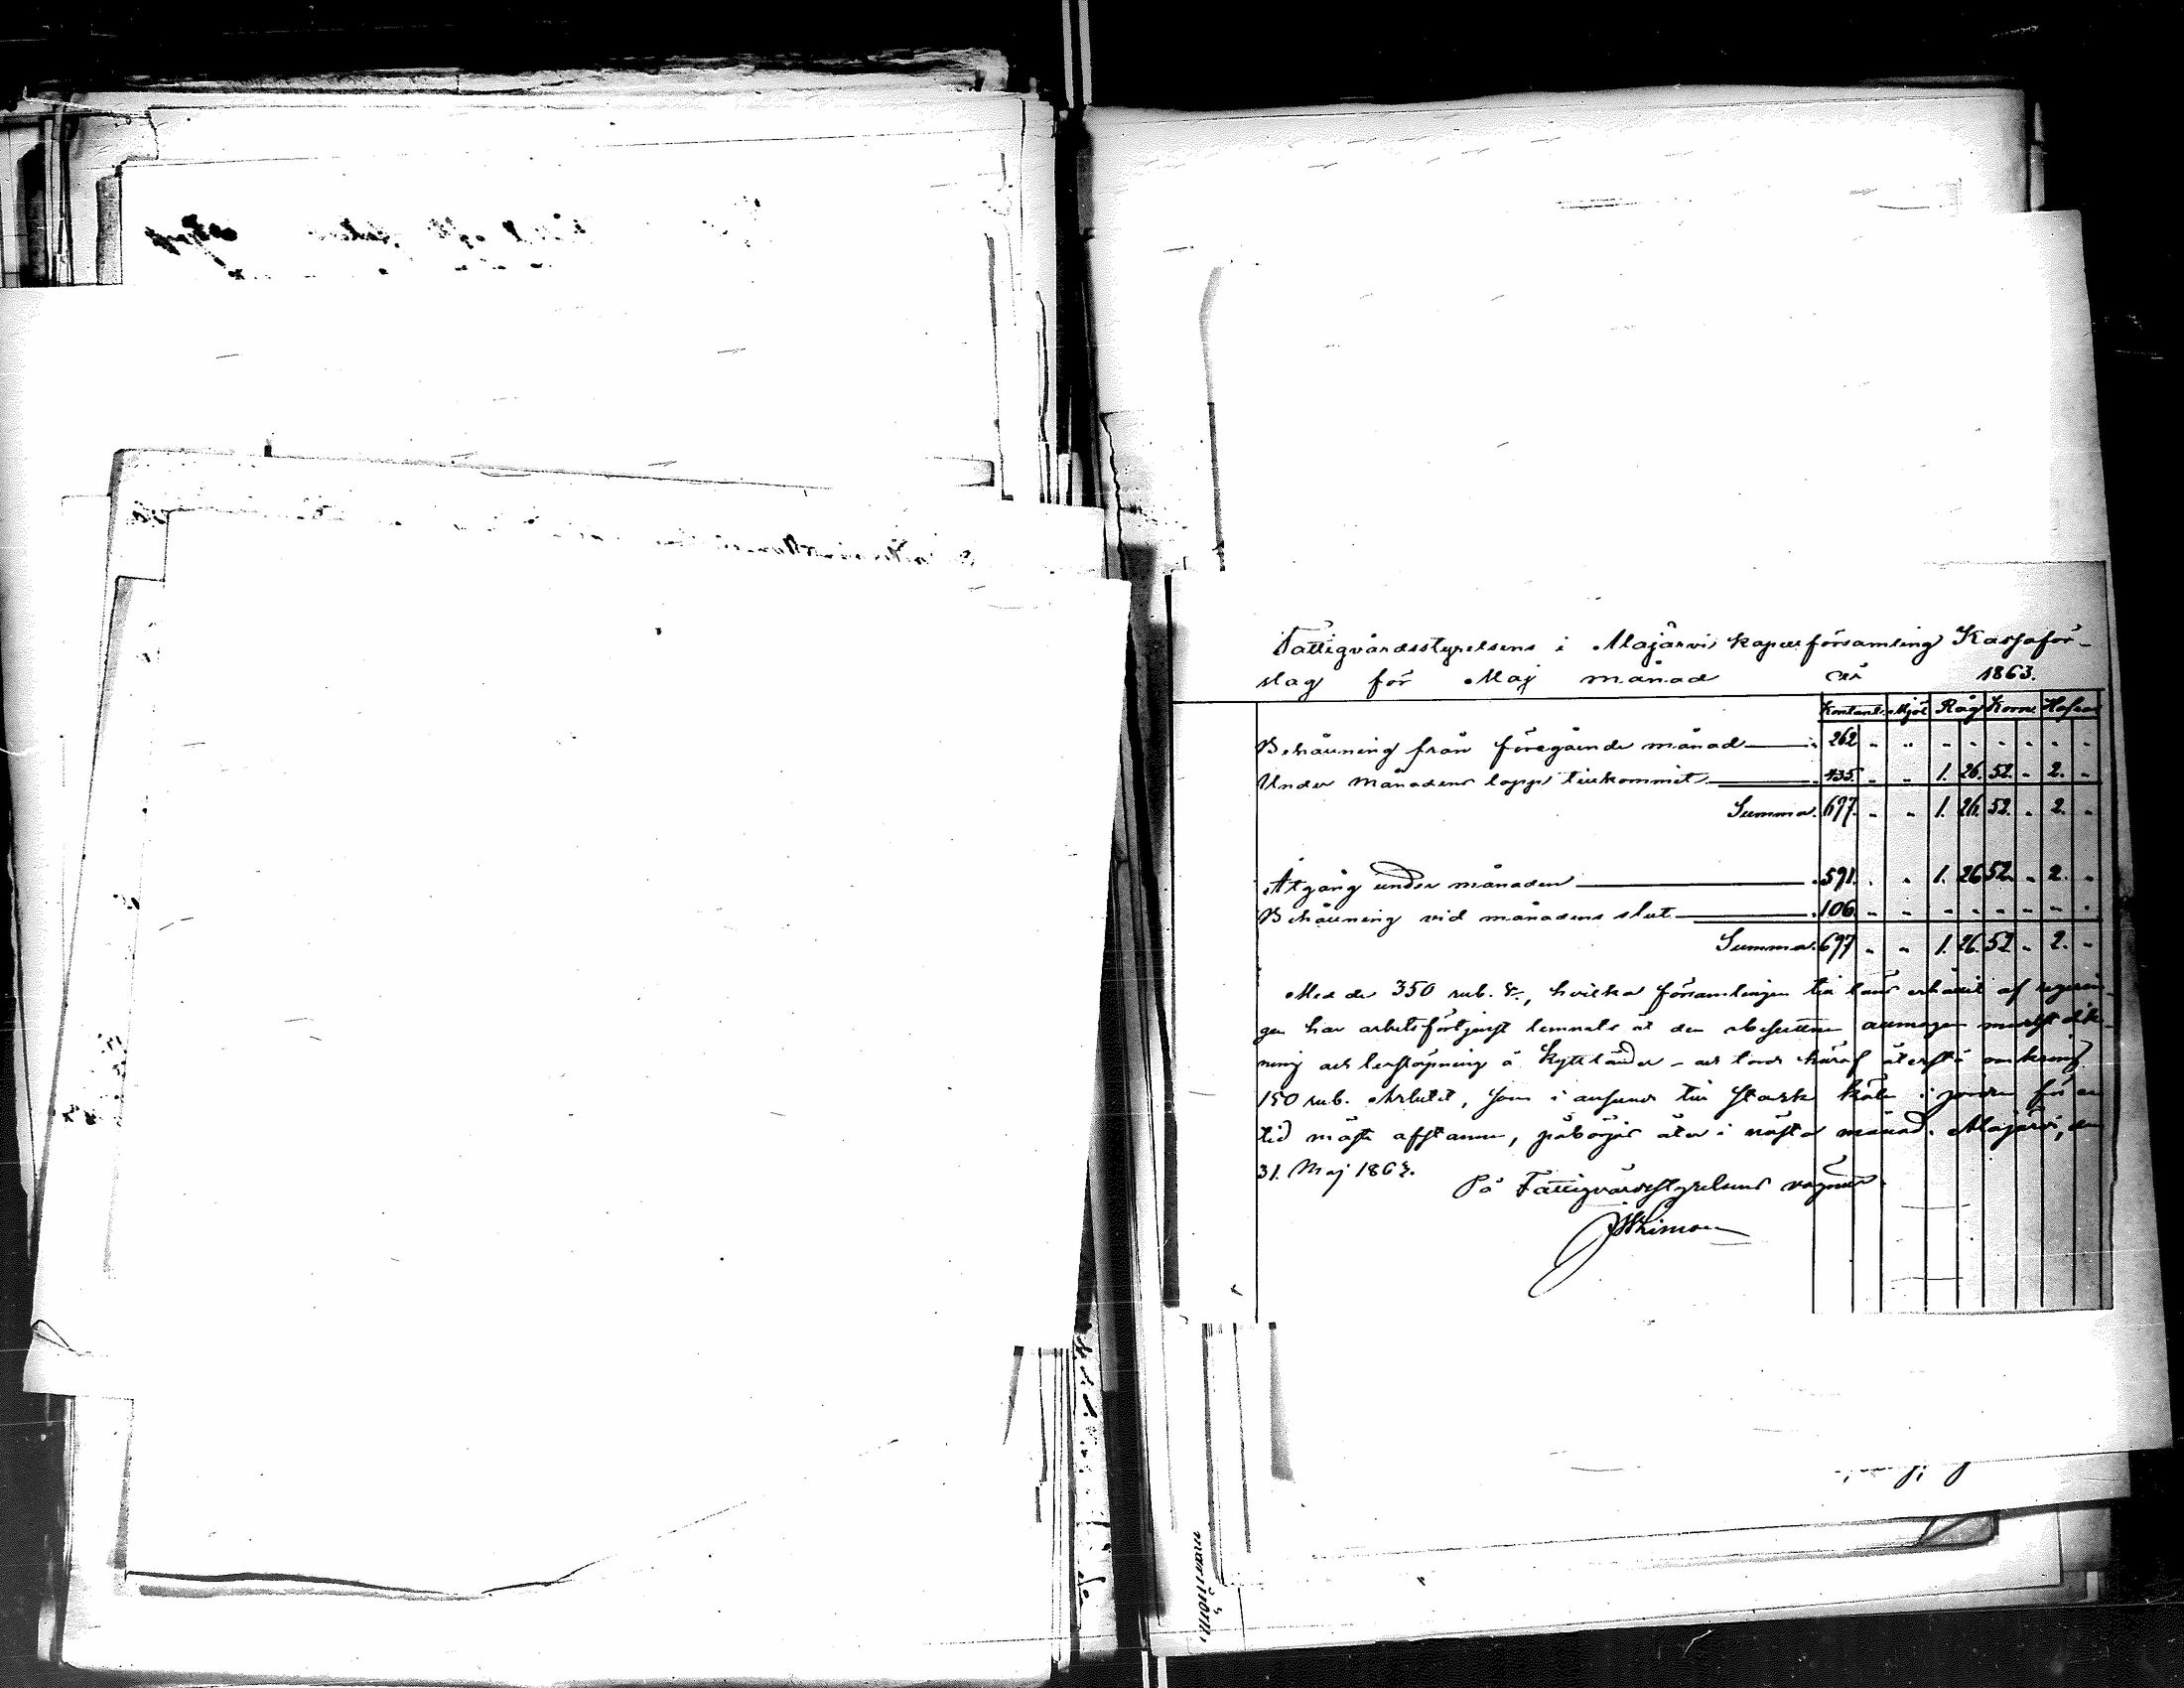 Fattigvårdsstyrelsens i Alajärvi kapellförsamling Kassaför-
slag för Maj månad år 1863.
Kontant. Mjöl Råg Korn. Hafra
Behållning från föregående månad 262 - - - - - - - -
Under månadens lopp tillkommit 435 - - 1. 26. 52. - 2. -
Summa. 697. - - 1. 26. 52. - 2. -
Afgång under månaden 591. - - 1. 26 52. - 2. -
Behållning vid månadens slut 106 - - - - - - - -
Summa. 697 - - 1. 26. 52 - 2. -
Med de 350 rub. Sr., hvilka församlingen till låns erhållit af regerin-
gen har arbetsförtjenst lemnats åt den obesuttna allmogen medelst dik-
ning och lerslåpning å Kyttländer - och torde häraf återstå omkring
150 rub. Arbetet, som i anseende till stark kåla i jorden för en
tid måste afstanna, påbörjas åter i nästa månad. Alajärvi, den
31. Maj 1863.
På Fattigvårdsstyrelsens vägnar